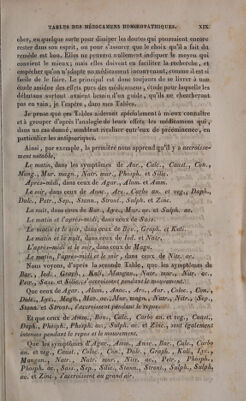 TABLES DES MÉDICAMENS HOMŒOPATHIQUES. XIX
cher, en quelque sorte pour dissiper les doutes qui pourraient encore
rester dans son esprit, ou pour s'assurer que le choix qu'il a fait du
remède est bon. Elles ne peuvent nullement indiquer le moyen qui
convient le mieux; mais elles doivent en faciliter la recherche, et
empêcher qu'on n'adopte un médicament inconvenant, comme il est si
facile de le faire. Le principal est donc toujours de se livrer à une
étude assidue des effets purs des médicamens, étude pour laquelle les
débutans surtout avaient besoin d'un guide, qu'ils ne chercheront
pas en vain, je l'espère, dans mes Tables.
Je pense que ces Tables aideront spécialement à mieux connaître
et à grouper d'après l'analogie de leurs effets les médicamens qui,
dans un cas donné, semblent rivaliser entr'eux de prééminence, en
particulier les antipsoriques.
Ainsi, par exemple, la première nous apprend qu'il y a accroisse-
ment notable,
Le matin, dans les symptômes de Aur., Calc., Caust., Con.,
Mang., Mur. magn., Natr. mur., Phosph. et Silic.
Après-midi, dans ceux de Agar., Alum. et Amm.
Le soir, dans ceux de Amm., Ars., Carbo an. et veg., Daph.,
Dulc., Petr., Sep., Stann., Stront., Sulph. et Zinc.
La nuit, dans ceux de Bar., Lyc., Mur. ac. et Sulph. ac.
Le matin et l'après-midi, dans ceux de Sass.
Le matin et le soir, dans ceux de Bov., Graph. et Kali.
Le matin et la nuit, dans ceux de Iod. et Natr.
L'après-midi et le soir, dans ceux de Magn.
Le matin, l'après-midi et le soir, dans ceux de Nitr. ac.
Nous voyons, d'après la seconde Table, que les symptômes de
Bar., Iod., Graph., Kali, Mangan., Natr. mur., Nitr. ac.,
Petr., Sass. et Silic. s'exaspèrent pendant le mouvement.
Que ceux de Agar., Alum., Anac., Ars., Aur., Coloc., Con.,
Dulc., Lyc., Magn., Mur. ac., Mur. magn., Natr., Nitr., Sep.,
Stann. et Stront. s'accroissent pendant le repos.
Et que ceux de Amm., Bov., Calc., Carbo an. et veg., Caust.,
Daph., Phosph., Phosph. ac., Sulph. ac. et Zinc., sont également
intenses pendant le repos et le mouvement.
Que les symptômes d'Agar., Amm., Anac., Bar., Calc., Carbo
an. et veg., Caust., Coloc., Con., Dulc., Graph., Kali, Lyc.,
Mangan., Natr., Natr. mur., Nitr. ac., Petr., Phosph.,
Phosph. ac., Sass., Sep., Silic., Stann., Stront., Sulph., Sulph.
ac. et Zinc., s'accroissent au grand air.